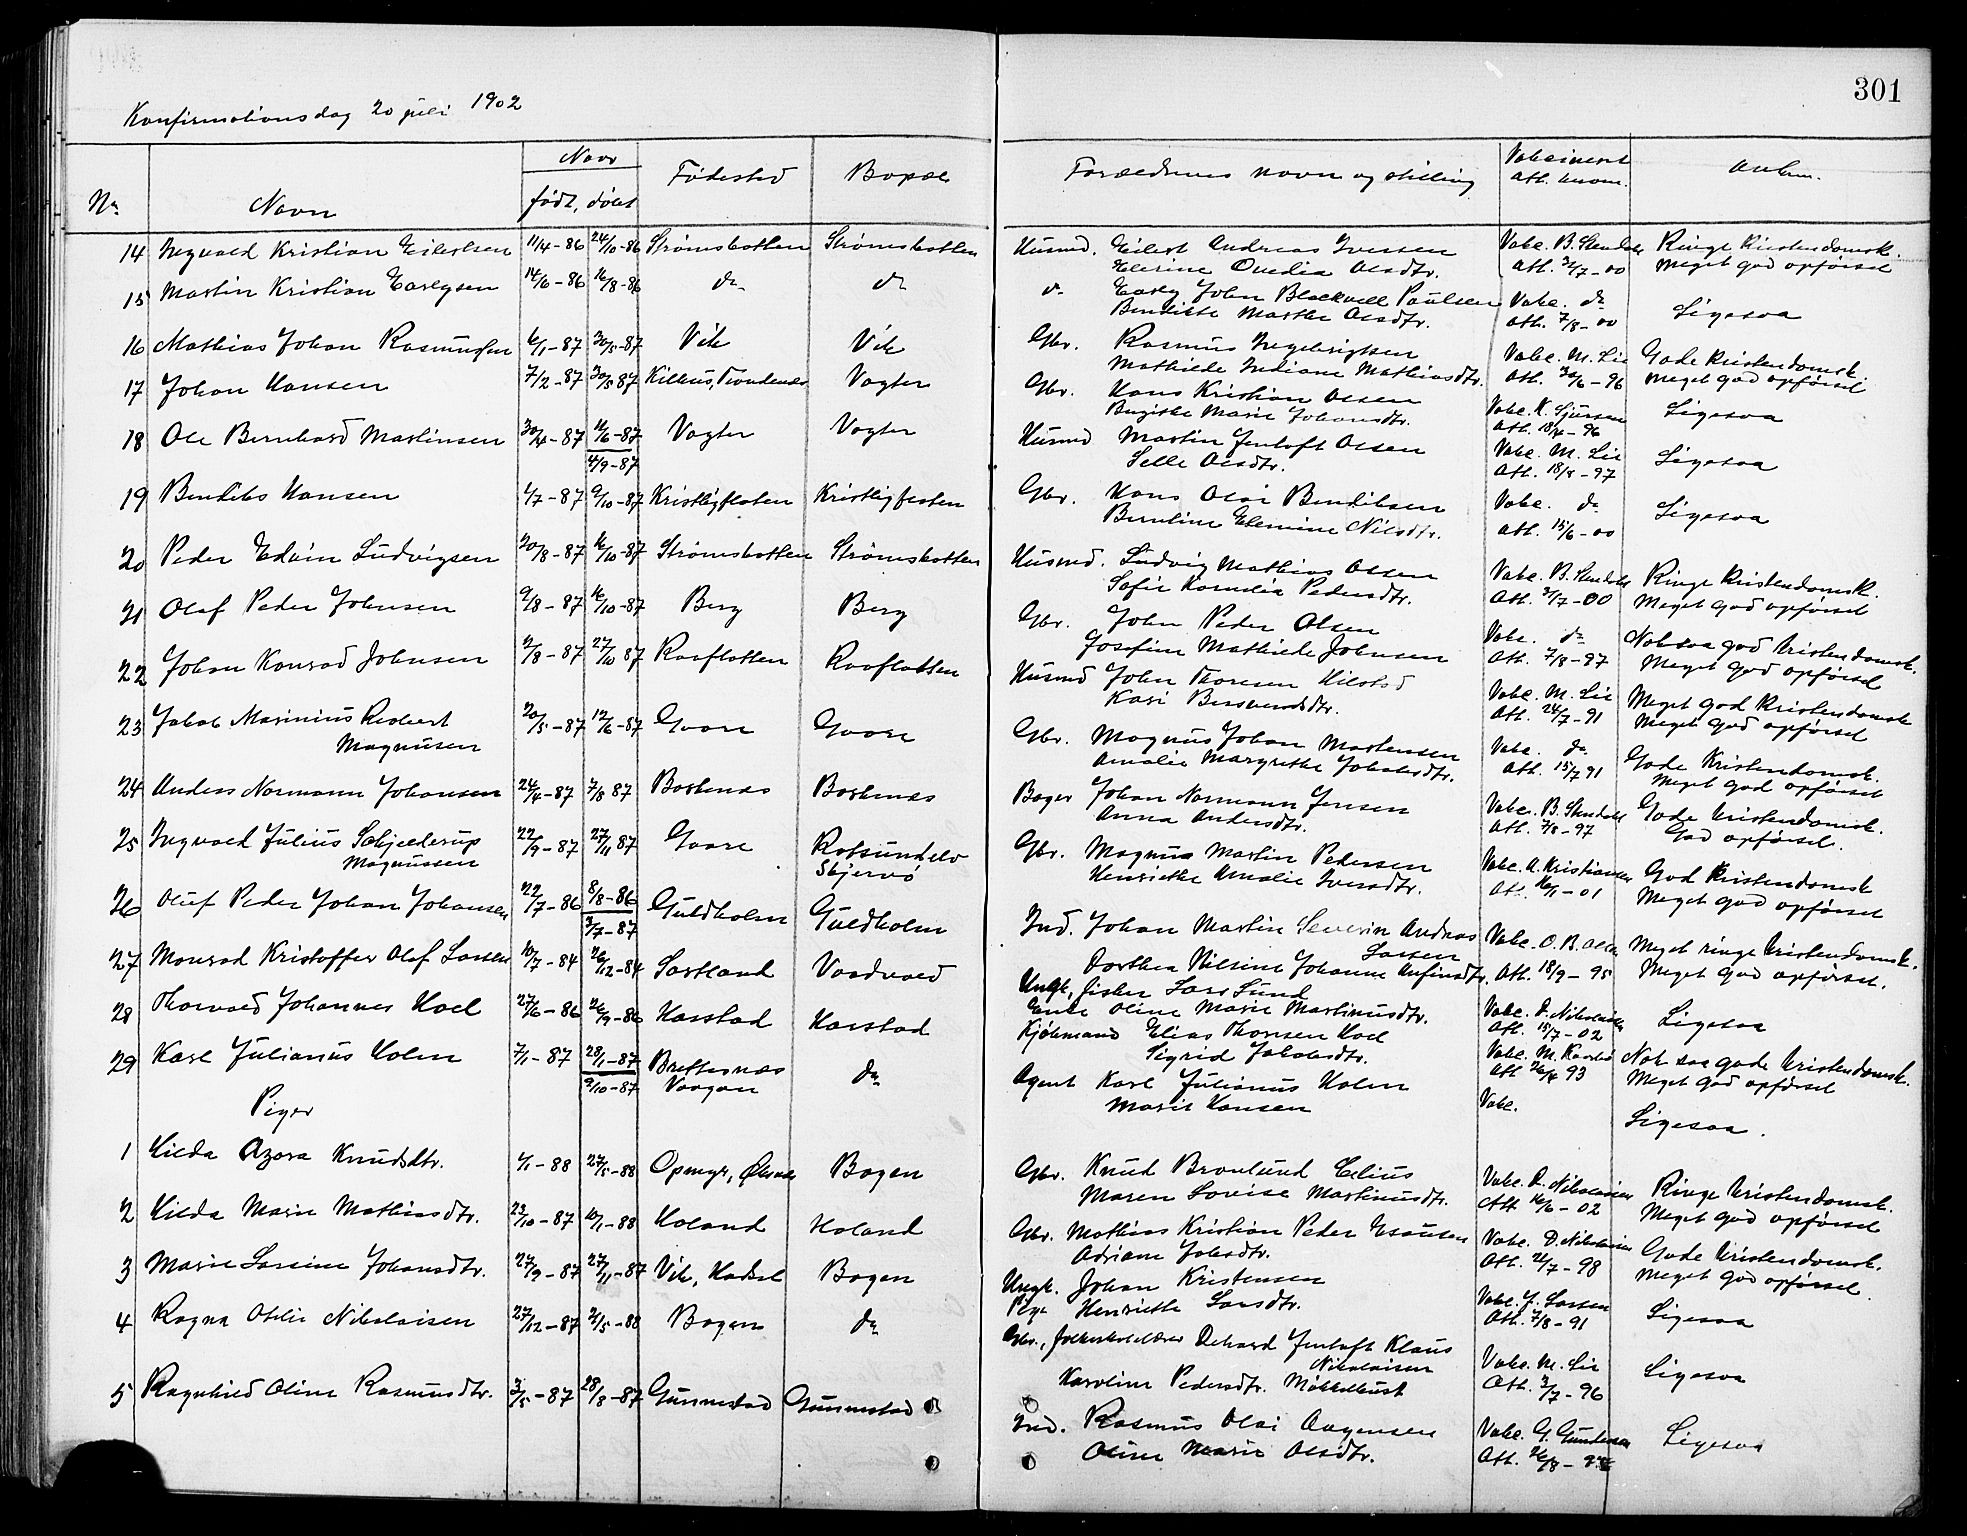 301
Konfirmationsdag 20 juli 1902
Nr. Navn Naar født, døbt Fødested Bopæl Forældrenes navn og stilling Vakcineret Att. anm.
14 Ingvald Kristian Eilertsen 11/4-86 24/10-86 Strømsbotten Strømsbotten Husmd. Eilert Andreas Iversen Vake. B. Ringe Kristendomsk.
Olsdtr. Att. 31/7-00 Meget god opførsel
15 Martin Kristian Earlysen 14/6-86 16/8-86 do do do Early John Blackwell Paulsen Vake. do Ligesaa
Martha Olsdtr. Att. 7/8-00
16 Mathias Johan Rasmussen 6/1-87 30/5-87 Vik Vik Gbr. Rasmus Ingebrigtsen Vake. M. Lie Gode Kristendomsk.
Mathilde Indiane Mathiasdtr. Att. 30/6-96 Meget god opførsel
17 Johan Hansen 7/2-87 30/5 87 Kilhus, Trondenes Vogter Gbr. Hans Kristian Olsen Vake. K. Sjursen Ligesaa
Marie Johansdtr. Att. 18/4-96
18 Ole Bernhard Martinsen 30/4-87 11/6-87 Vogter Vogter Husmd Martin Jentoft Olsen Vake. M. Lie Ligesaa
4/9-87 Selle Olsdtr. Att. 18/8-97
19 Bendiks Hansen 1/7-87 9/10-87 Kristligfesten Kristligfesten Gbr. Hans Olai Bendiksen Vake. do Ligesaa
Nilsdtr. Att. 15/6-00
20 Peder Edvin Ludvigsen 20/8-87 16/10-87 Strømsbotten Strømsbotten Husmd. Ludvig Mathias Olsen Vake. B. Ringe Kristendomsk.
Sofie Kornelia Pedersdtr. Att. 31/7-00 Meget god opførsel
21 Olaf Peder Johnsen 9/8-87 16/10-87 Berg Berg Gbr. John Peder Olsen Vake. do Nok saa god Kristendomsk.
Josefine Mathilde Johnsen Att. 7/8-97 Meget god opførsel
22 Johan Konrad Johnsen 2/8-87 27/10 87 Raaflatten Raaflatten Husmd John Thoresen Vake. M. Lie Meget god Kristendomsk
Kari Att. 24/7-91 Meget god opførsel
23 Jakob Marinius Robert 20/5-87 12/6-87 Gaare Gaare Gbr. Magnus Johan Martensen Vake. do Gode Kristendomsk.
Magnusen Amalie Margrethe Jakobsdtr. Att. 15/7 91 Meget god opførsel
24 Anders Normann Johansen 24/4-87 7/8 87 Borkenes Borkenes Bager Johan Normann Jensen Vake. B. Gode Kristendomsk.
Anna Andersdtr. Att. 7/8-97 God opførsel.
25 Ingvald Julius Schjelderup 22/9-87 27/11 87 Gaare Rotsundelv Gbr. Magnus Martin Pedersen Vake. A. Kristiansen God Kristendomsk
Magnussen Skjervø Henriette Amalie Iversdtr. Att. 16/1-01 Meget god opførsel
26 Oluf Peder Johan Johansen 22/7-86 8/8-86 Guldholm Guldholm Ind. Johan Martin Severin Andreas Vake. O. B. Olsen Meget ringe Kristendomsk.
3/7-87 Larsen
Dorthea Nilsine Johanne Anfinsdtr. Att. 18/9-95 Meget god opførsel.
27 Monrad Kristoffer Olaf Larsen 10/7-84 26/12-84 Sortland Vaadvoed Ungk, fisker Lars Lund Vake. D. Nikolaisen Ligesaa
Enke Oline Marie Martinusdtr. Att. 15/7-02
28 Thorvald Johannes Hoel 27/6-86 26/9-86 Harstad Harstad Kjøbmand Elias Thorsen Hoel Vake. M. Nok saa gode Kristendomsk.
Sigrid Jakobsdtr. Att 26/4 93 Meget god opførsel
29 Karl Julianus Holm 7/1-87 28/1-87 Brettesnæs do Agent Karl Julianus Holm Vake. Ligesaa.
9/10-87 Vaagan Marit Hansen
Piger
1 Hilda Azora Knudsdtr. 1/1-88 27/5-88 Opmyr, Øksnes Bogen Gbr. Knud Bronlund Celius Vake. D. Nikolaisen Ringe Kristendomsk.
Maren Lovise Martinusdtr. Att 16/6-02 Meget god opførsel
2 Hilda Marie Mathiasdtr. 23/10-87 10/1-88 Holand Holand Gbr. Mathias Kristian Peder Esausen Vake. D. Nikolaisen Gode Kristendomsk.
Adriane Jakobsdtr. Att. 21/7-98 Meget god opførsel.
3 Marie Larsine Johansdtr. 27/9-87 27/11-87 Vik, Hadsel Bogen Ungk. Johan Kristensen Vake. J. Larsen Ligesaa
Pige Henriette Larsdtr. Att. 7/8-91
4 Ragna Otilie Nikolaisen 27/12-87 21/5-88 Bogen do Gbr., folkeskolelærer Dehard Jentoft Klaus Vake. M. Lie Ligesaa
Nikolaisen
Karoline Pedersdtr. Møkkelbust Att. 3/7-96
5 Ragnhild Oline Rasmusdtr. 3/5-87 28/8-87 Gunnestad Gunnestad Ind. Rasmus Olai Aagensen Vake. G. Gundersen Ligesaa
Oline Marie Olsdtr. Att. 26/8-